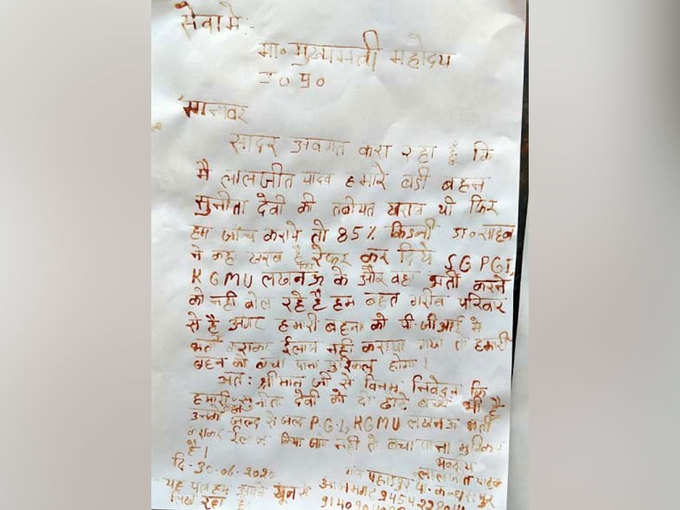 सेवा मे:
मा० मुख्यमंत्री महोदय
उ० प्र०
मान्यवर
सादर अवगत करा रहा है कि
मै लालजीत यादव हमारे बडी बहन
सुनीता देवी की तबीयत खराब थी फिर
हम जांच कराये तो 85% किडनी डा० साहब
ने कह खराब है रेफर कर दिये SGPGI,
KGMU लखनऊ के और वह भर्ती करने
को नही बोल रहे है हम बहुत गरीब परिवार
से है अगर हमारी बहना को पी.जीआई मे
भर्ती कराका ईलाज नही कराया गया तो हमारी
बहन को बचा पाना मुश्किल होगा।
अत: श्रीमान जी से विनम्र निवेदन कि
हमारी सुनीता देवी को दो छोटे बच्चे भी है
उनको जल्द से जल्द P.G.I, KGMU लखनऊ भर्ती
कराकर ईलाज किया जाय नही तो बचा पाना मुश्किल
है।
दि- 30-06-2020
लालजीत यादव
यह पत्र हम अपने खून से
लिख रहा है